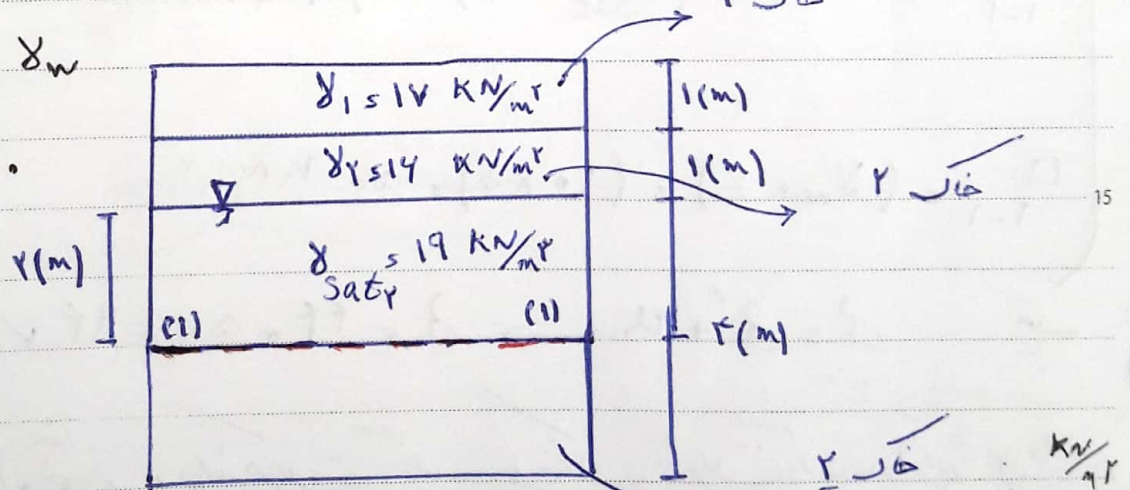 خاک ۱
γw
γ۱ = ۱۷ KN/m۳
۱(m)
γ۲ = ۱۶ KN/m۳
۱(m)
خاک ۲
15
۲(m)
γsat۲ = ۱۹ KN/m۳
(۱) (۱)
۴(m)
خاک ۲
KN/m۳